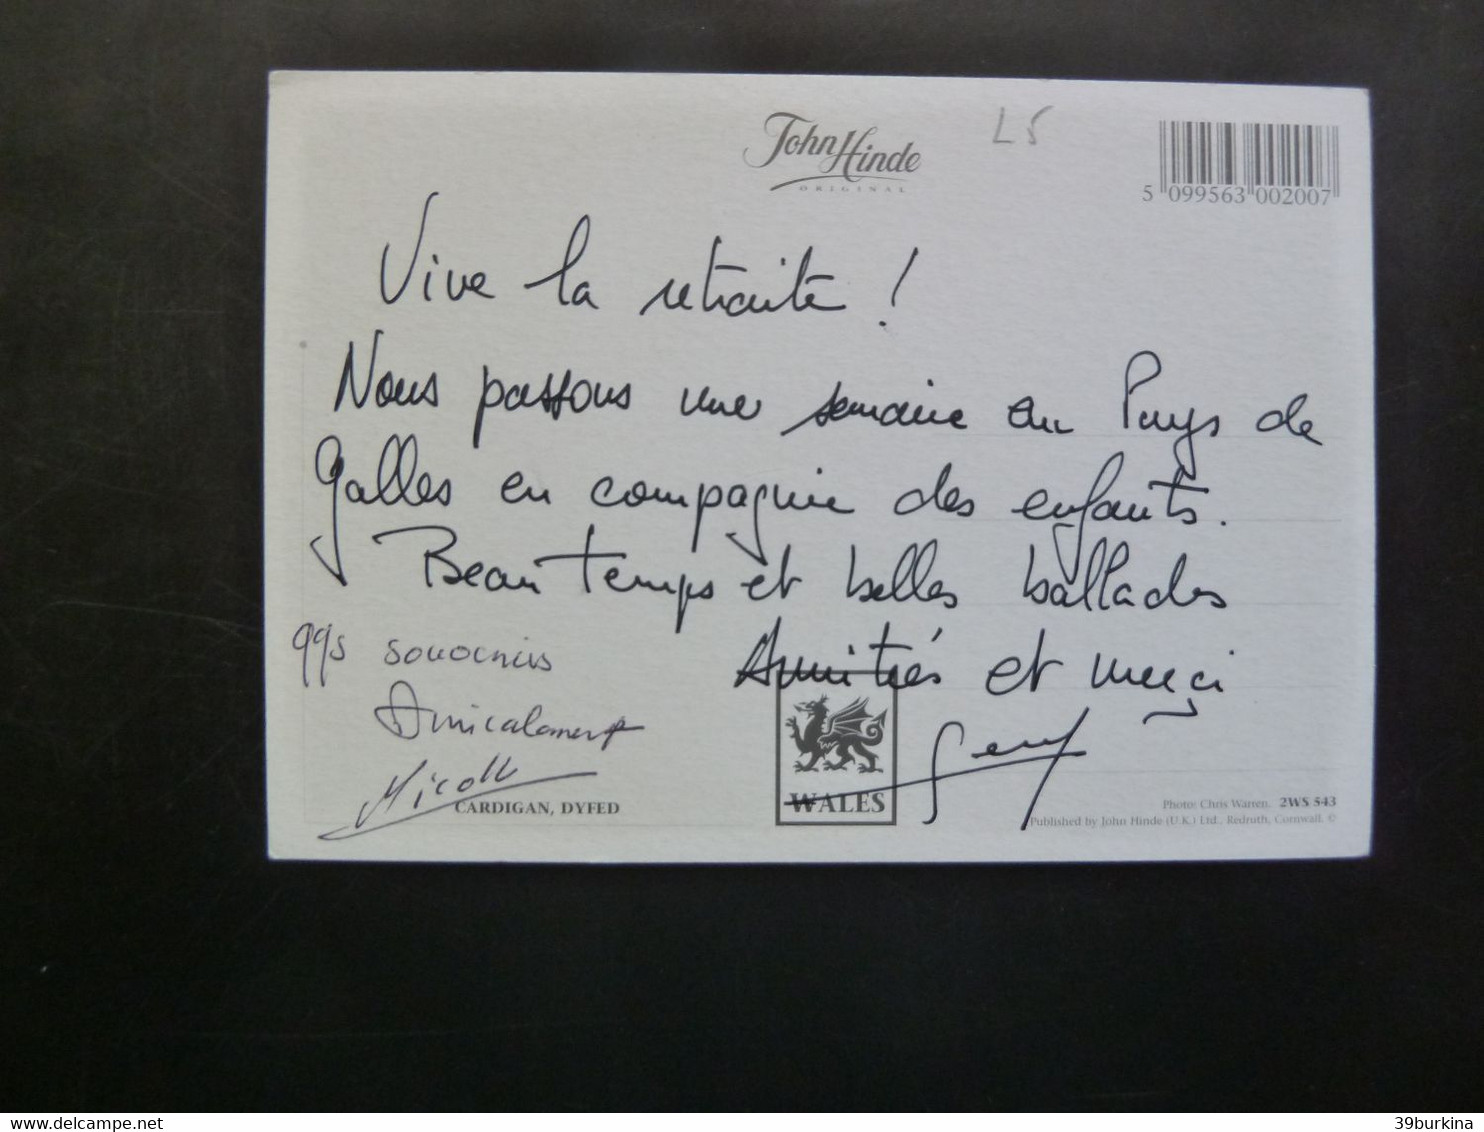 John Hinde
ORIGINAL
L5
5 099563 002007
Vive la retraite !
Nous passons une semaine au Pays de
Galles en compagnie des enfants.
Beau temps et belles ballades
Amitiés et merci
qqs souvenirs
Amicalement
WALES
CARDIGAN, DYFED
Photo: Chris Warren. 2WS 543
Published by John Hinde (U.K.) Ltd., Redruth, Cornwall. ©
39burkina